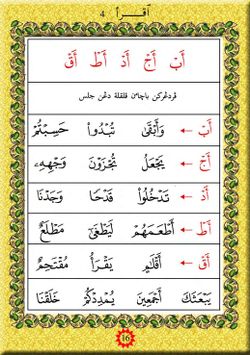 اقرأ 4
أَبْ أَجْ أَدْ أَطْ أَقْ
ڤردڠركن باچاٴن قلقلة دڠن جلس
أَبْ ← وَأَبْقَىٰ تُبْدُوا۟ حَسِبْتُمْ
أَجْ ← يَجْعَلْ تُجْزَوْنَ وَجْهِهِۦ
أَدْ ← تَدْخُلُوا۟ قَدْحًا وَجَدْنَا
أَطْ ← أَطْعَمَهُمْ لَيَطْغَىٰ مَطْلَعِ
أَقْ ← أَقْلَٰمٌ يَقْرَأُ مُقْتَحِمٌ
يَبْعَثَكَ أَجْمَعِينَ يُمْدِدْكُمْ خَلَقْنَا
16